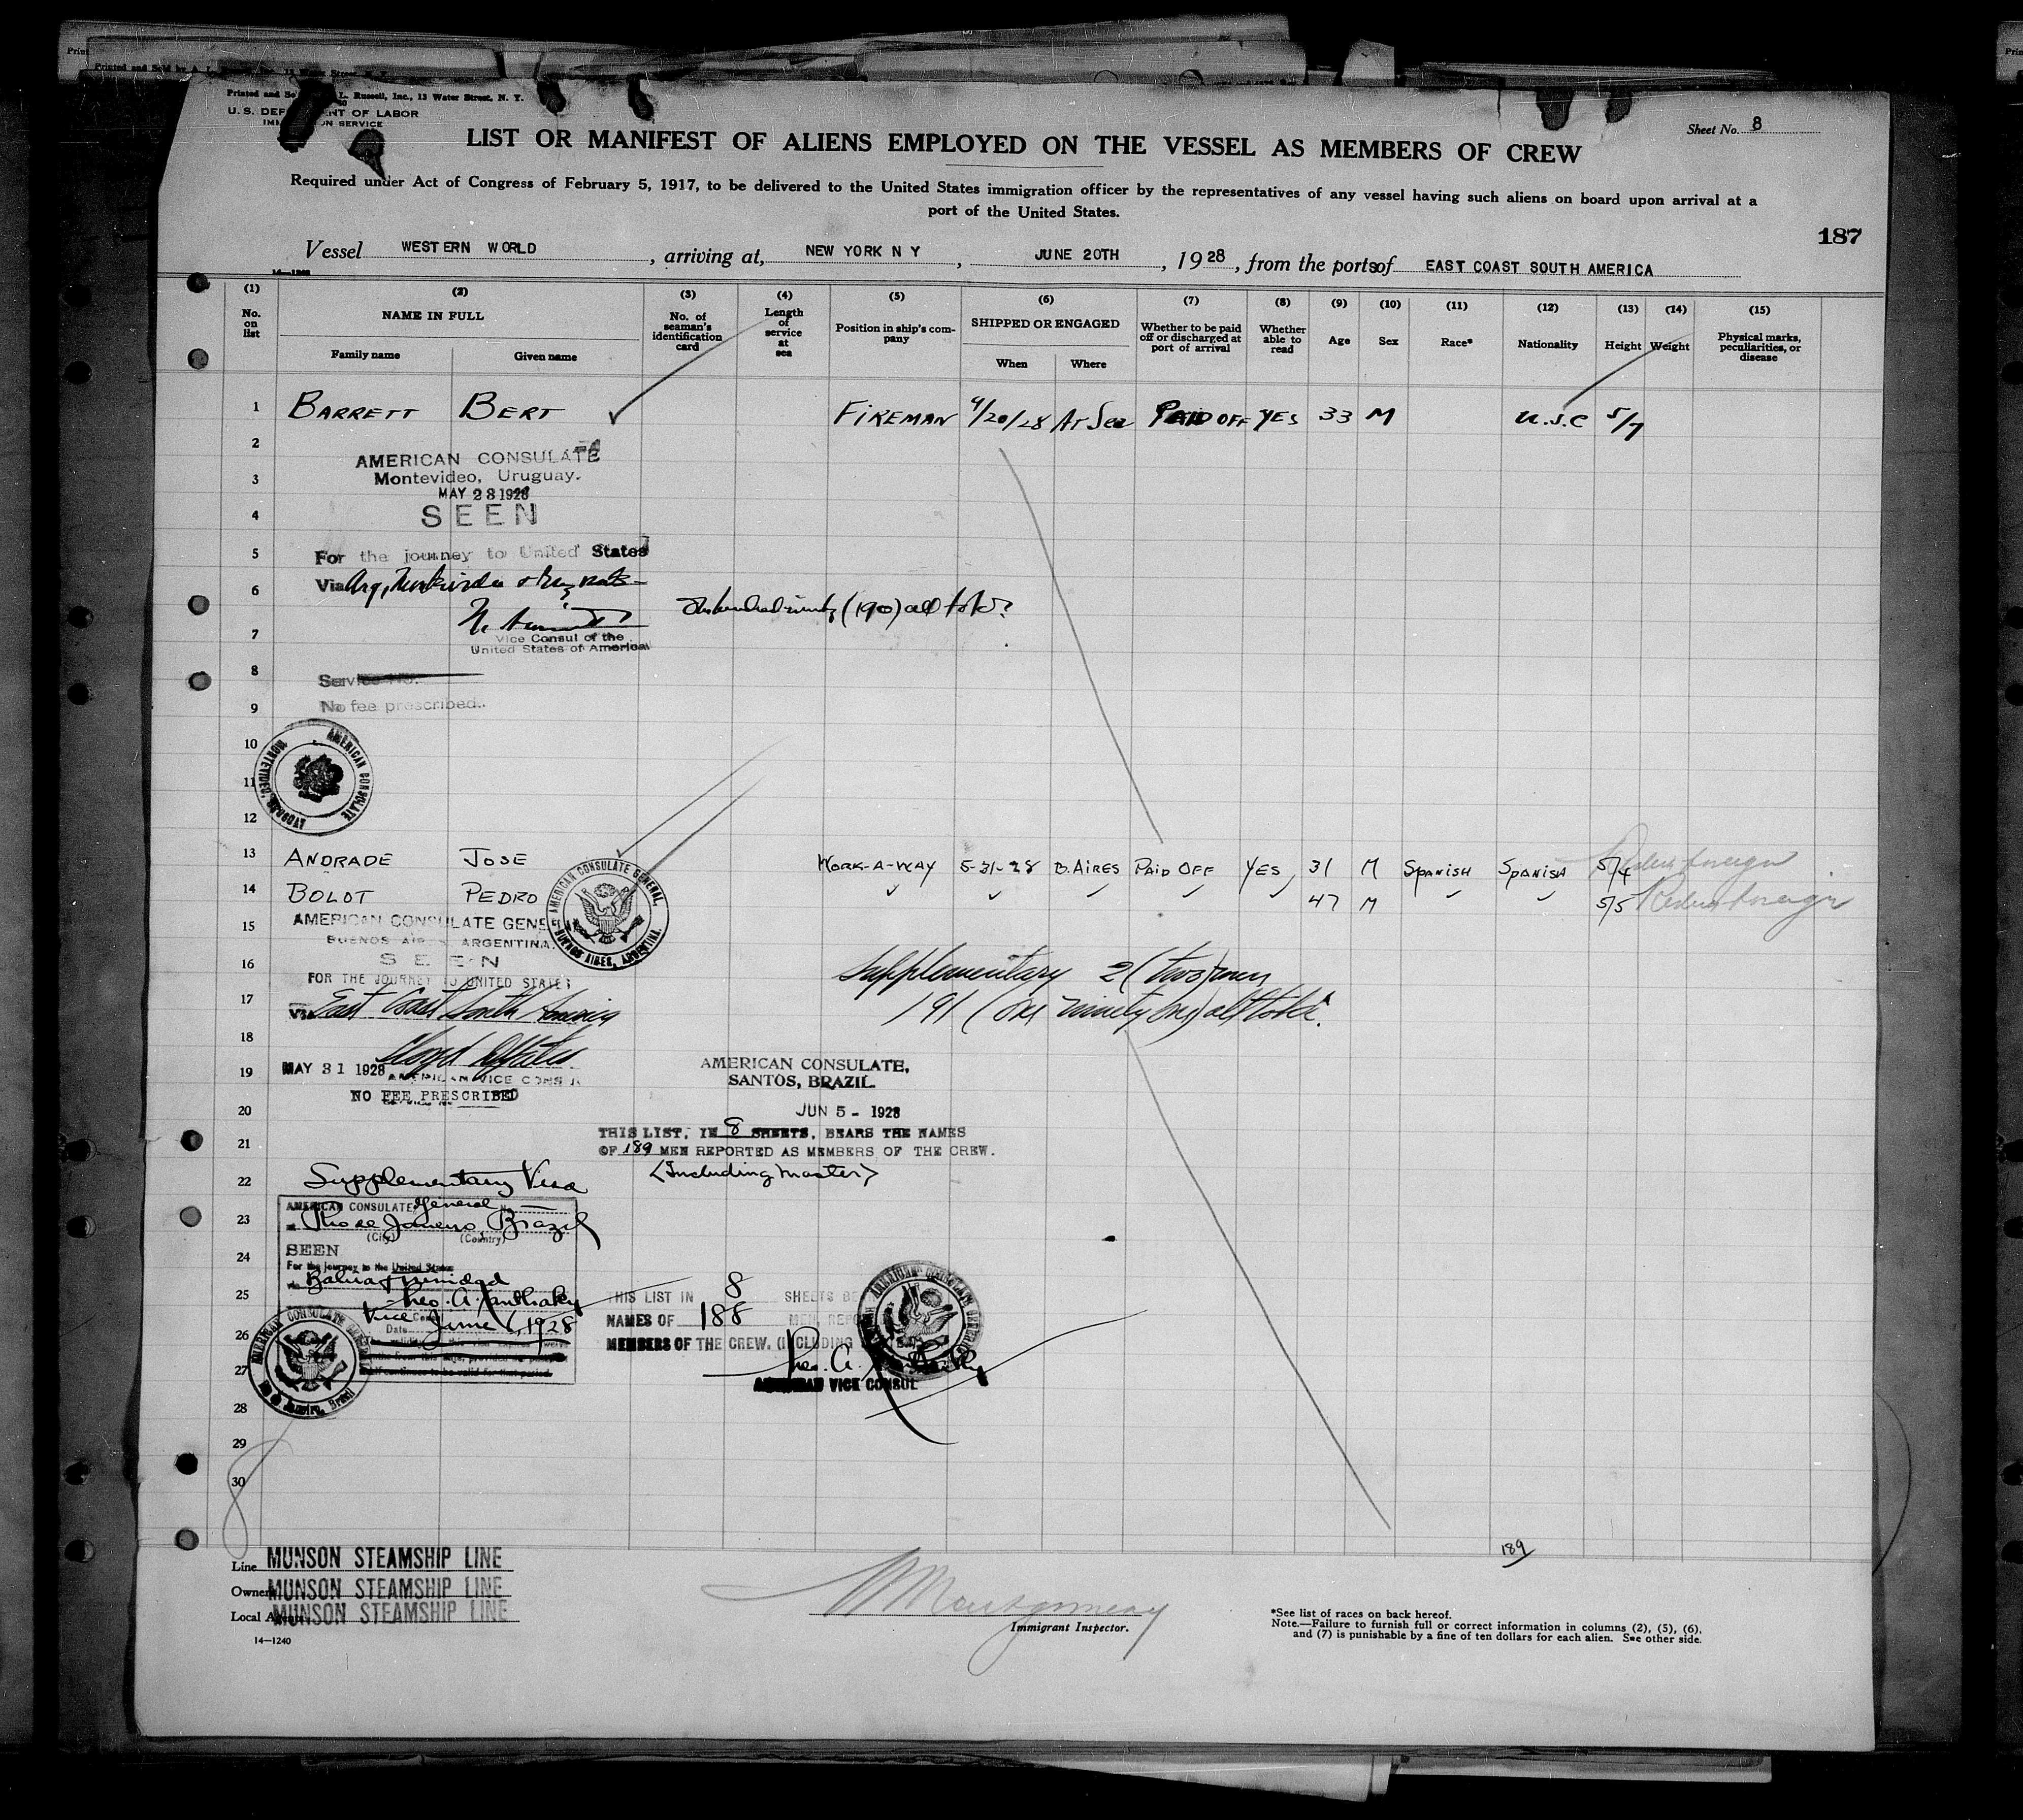 Printed and So L. Russell, Inc., 13 Water Street, N. Y.
U. S. DEP ENT OF LABOR
IMM N SERVICE
Sheet No. 8
LIST OR MANIFEST OF ALIENS EMPLOYED ON THE VESSEL AS MEMBERS OF CREW
Required under Act of Congress of February 5, 1917, to be delivered to the United States immigration officer by the representatives of any vessel having such aliens on board upon arrival at a
port of the United States.
187
Vessel WESTERN WORLD, arriving at, NEW YORK N Y, JUNE 20TH, 1928, from the ports of EAST COAST SOUTH AMERICA
14-1240
(1) (2) (3) (4) (5) (6) (7) (8) (9) (10) (11) (12) (13) (14) (15)
No. on list
NAME IN FULL
Family name Given name
No. of seaman's identification card
Length of service at sea
Position in ship's company
SHIPPED OR ENGAGED
When Where
Whether to be paid off or discharged at port of arrival
Whether able to read
Age
Sex
Race*
Nationality
Height
Weight
Physical marks, peculiarities, or disease
1 BARRETT BERT FIREMAN 4/20/28 AT Sea PAID OFF YES 33 M U.S.C 5/7
2
AMERICAN CONSULATE
3 Montevideo, Uruguay.
MAY 28 1928
4 SEEN
5 For the journey to United States
6 Via
(190) all told
7
Vice Consul of the
United States of America
8 Service No.
9 No fee prescribed.
10
11
12
AMERICAN CONSULATE MONTEVIDEO,
13 ANDRADE JOSE WORK-A-WAY 5-31-28 B. AIRES PAID OFF YES 31 M SPANISH SPANISH 5/4 foreign
14 BOLOT PEDRO ✓ ✓ ✓ ✓ ✓ 47 M ✓ ✓ 5/5 foreign
AMERICAN CONSULATE GENERAL, BUENOS AIRES, ARGENTINA.
15 AMERICAN CONSULATE GENE
BUENOS AIRES ARGENTINA.
16 SEEN
Supplementary 2 (two) men
FOR THE JOURNEY TO UNITED STATES
17 VIA East Coast South America
191 (one ninety one) all told.
18
19 MAY 31 1928
AMERICAN VICE CONSUL
NO FEE PRESCRIBED
AMERICAN CONSULATE,
SANTOS, BRAZIL.
20 JUN 5 - 1928
21 THIS LIST, IN 8 SHEETS, BEARS THE NAMES
OF 189 MEN REPORTED AS MEMBERS OF THE CREW.
(Including master)
22 Supplementary Visa
AMERICAN CONSULATE General No.
23 Rio de Janeiro, Brazil
(City) (Country)
24 SEEN
For the journey to the United States
via Bahia & Trinidad
25 THIS LIST IN 8 SHEETS BE
Vice Consul
NAMES OF 188 MEN, REPO
Date June 6, 1928
26 MEMBERS OF THE CREW. (INCLUDING
27
AMERICAN VICE CONSUL
if continues to be valid for that period.
AMERICAN CONSULATE GENERAL Rio de Janeiro, Brazil
AMERICAN CONSULATE GENERAL
28
29
30
189
Line MUNSON STEAMSHIP LINE
Owners MUNSON STEAMSHIP LINE
Local Agents MUNSON STEAMSHIP LINE
14—1240
Montgomery
Immigrant Inspector.
*See list of races on back hereof.
Note.—Failure to furnish full or correct information in columns (2), (5), (6),
and (7) is punishable by a fine of ten dollars for each alien. See other side.